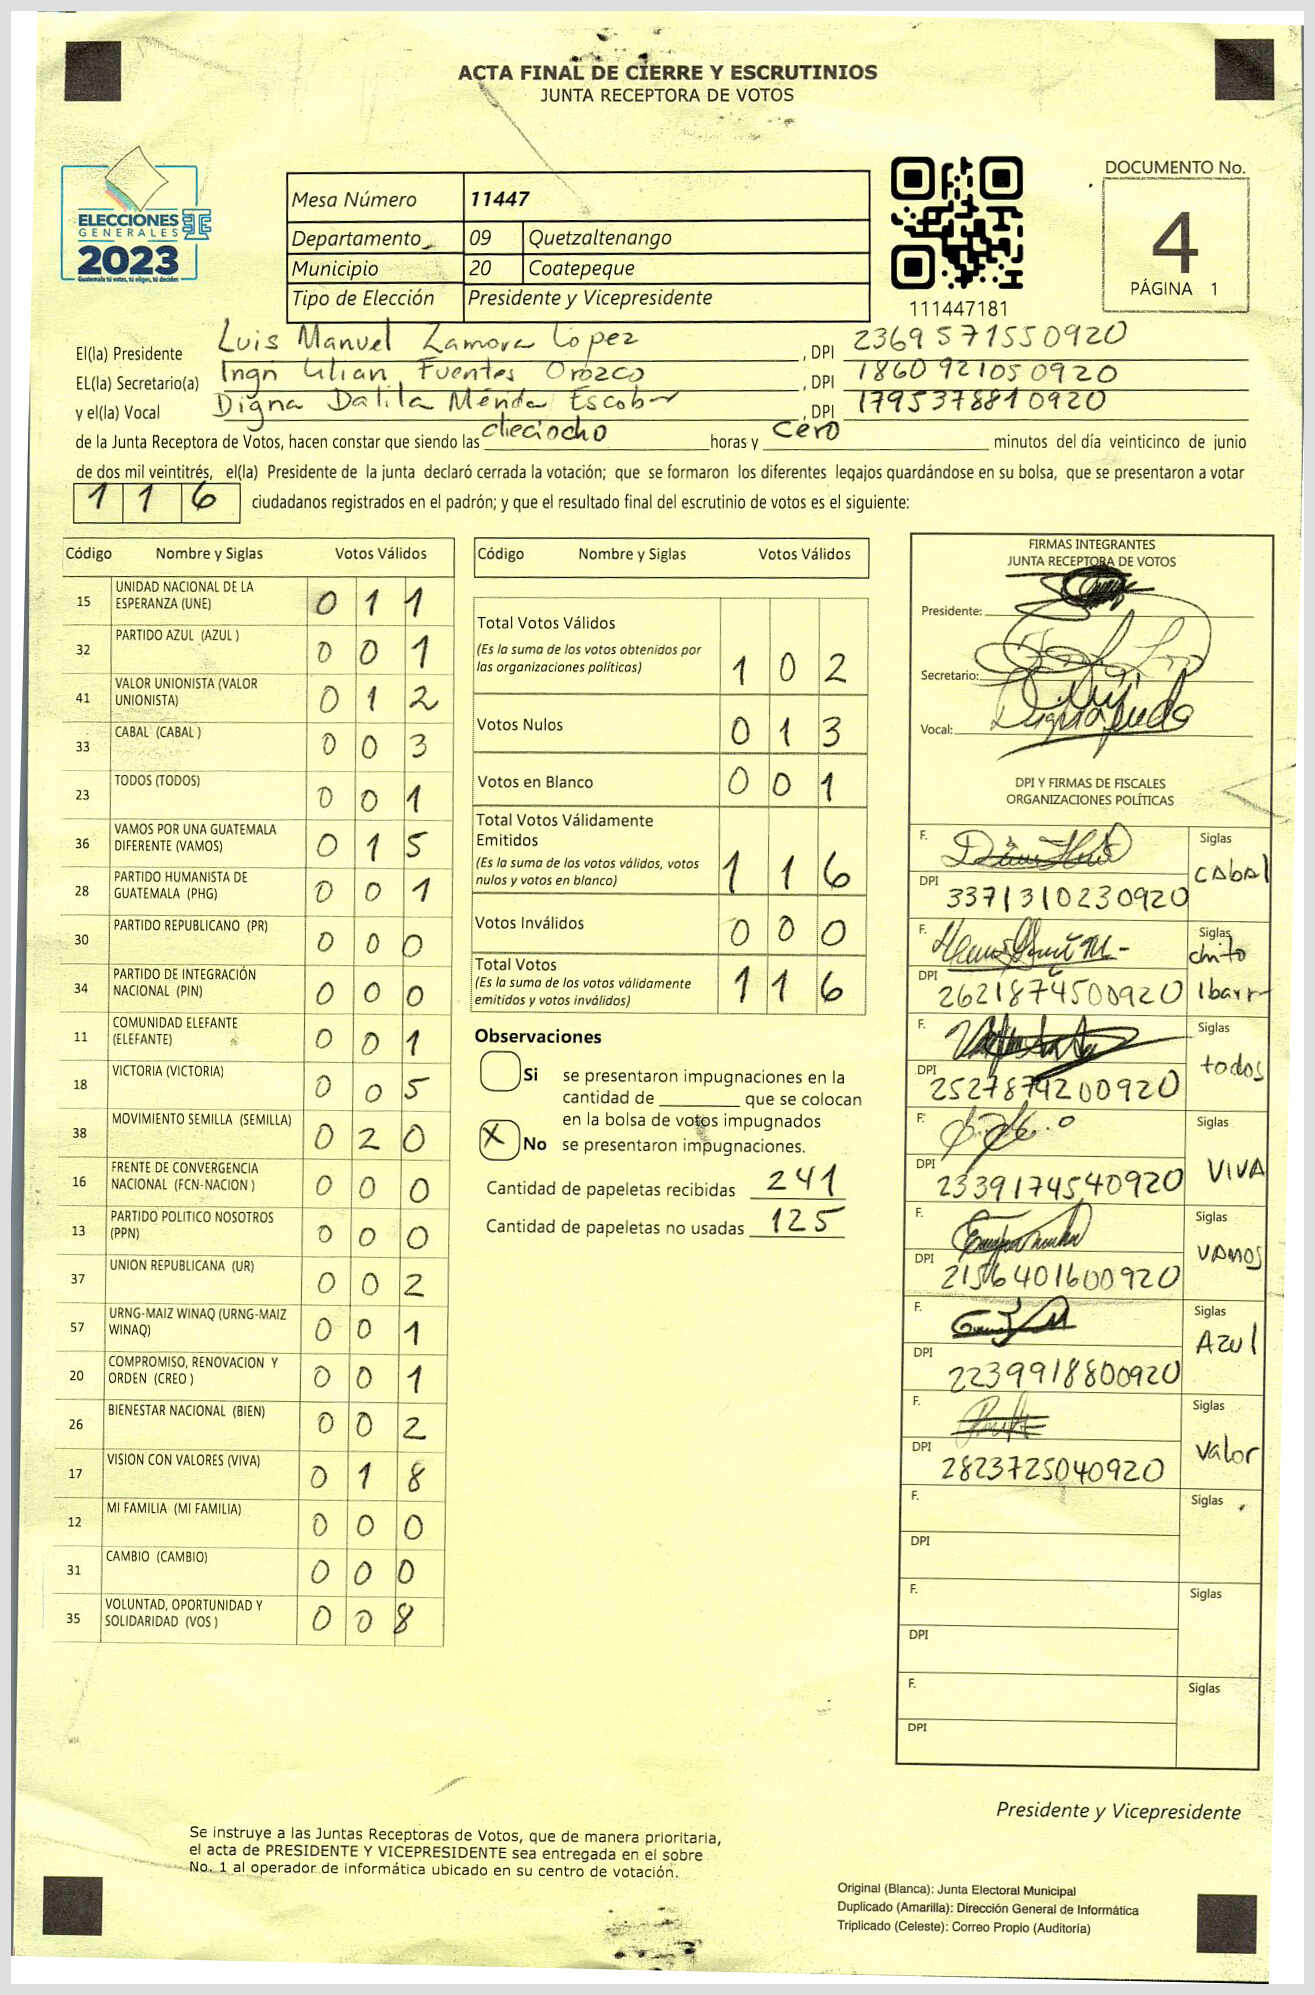 ACTA FINAL DE CIERRE Y ESCRUTINIOS
JUNTA RECEPTORA DE VOTOS
ELECCIONES
GENERALES
2023
Guatemala tú votas, tú eliges, tú decides
Mesa Número 11447
Departamento 09 Quetzaltenango
Municipio 20 Coatepeque
Tipo de Elección Presidente y Vicepresidente
111447181
DOCUMENTO No.
4
PÁGINA 1
El(la) Presidente Luis Manuel Zamora López, DPI 2369571550920
EL(la) Secretario(a) Ingri Lilian Fuentes Orozco, DPI 1860921050920
y el(la) Vocal Digna Dalila Mérida Escobar, DPI 1795378810920
de la Junta Receptora de Votos, hacen constar que siendo las dieciocho horas y cero minutos del día veinticinco de junio
de dos mil veintitrés, el(la) Presidente de la junta declaró cerrada la votación; que se formaron los diferentes legajos quardándose en su bolsa, que se presentaron a votar
116 ciudadanos registrados en el padrón; y que el resultado final del escrutinio de votos es el siguiente:
Código Nombre y Siglas Votos Válidos
15 UNIDAD NACIONAL DE LA ESPERANZA (UNE) 011
32 PARTIDO AZUL (AZUL ) 001
41 VALOR UNIONISTA (VALOR UNIONISTA) 012
33 CABAL (CABAL ) 003
23 TODOS (TODOS) 001
36 VAMOS POR UNA GUATEMALA DIFERENTE (VAMOS) 015
28 PARTIDO HUMANISTA DE GUATEMALA (PHG) 001
30 PARTIDO REPUBLICANO (PR) 000
34 PARTIDO DE INTEGRACIÓN NACIONAL (PIN) 000
11 COMUNIDAD ELEFANTE (ELEFANTE) 001
18 VICTORIA (VICTORIA) 005
38 MOVIMIENTO SEMILLA (SEMILLA) 020
16 FRENTE DE CONVERGENCIA NACIONAL (FCN-NACION ) 000
13 PARTIDO POLITICO NOSOTROS (PPN) 000
37 UNION REPUBLICANA (UR) 002
57 URNG-MAIZ WINAQ (URNG-MAIZ WINAQ) 001
20 COMPROMISO, RENOVACION Y ORDEN (CREO ) 001
26 BIENESTAR NACIONAL (BIEN) 002
17 VISION CON VALORES (VIVA) 018
12 MI FAMILIA (MI FAMILIA) 000
31 CAMBIO (CAMBIO) 000
35 VOLUNTAD, OPORTUNIDAD Y SOLIDARIDAD (VOS ) 008
Código Nombre y Siglas Votos Válidos
Total Votos Válidos
(Es la suma de los votos obtenidos por
las organizaciones políticas) 102
Votos Nulos 013
Votos en Blanco 001
Total Votos Válidamente
Emitidos
(Es la suma de los votos válidos, votos
nulos y votos en blanco) 116
Votos Inválidos 000
Total Votos
(Es la suma de los votos válidamente
emitidos y votos inválidos) 116
Observaciones
Si se presentaron impugnaciones en la
cantidad de ________ que se colocan
en la bolsa de votos impugnados
X No se presentaron impugnaciones.
Cantidad de papeletas recibidas 241
Cantidad de papeletas no usadas 125
FIRMAS INTEGRANTES
JUNTA RECEPTORA DE VOTOS
Presidente:
Secretario:
Vocal:
DPI Y FIRMAS DE FISCALES
ORGANIZACIONES POLÍTICAS
F. Siglas CABAL
DPI 3371310230920
F. Siglas chito Ibarr
DPI 2621874500920
F. Siglas todos
DPI 2527874200920
F. Siglas VIVA
DPI 2339174540920
F. Siglas VAMOS
DPI 2156401600920
F. Siglas Azul
DPI 2239918800920
F. Siglas Valor
DPI 2823725040920
F. Siglas
DPI
F. Siglas
DPI
F. Siglas
DPI
Presidente y Vicepresidente
Se instruye a las Juntas Receptoras de Votos, que de manera prioritaria,
el acta de PRESIDENTE Y VICEPRESIDENTE sea entregada en el sobre
No. 1 al operador de informática ubicado en su centro de votación.
Original (Blanca): Junta Electoral Municipal
Duplicado (Amarilla): Dirección General de Informática
Triplicado (Celeste): Correo Propio (Auditoría)